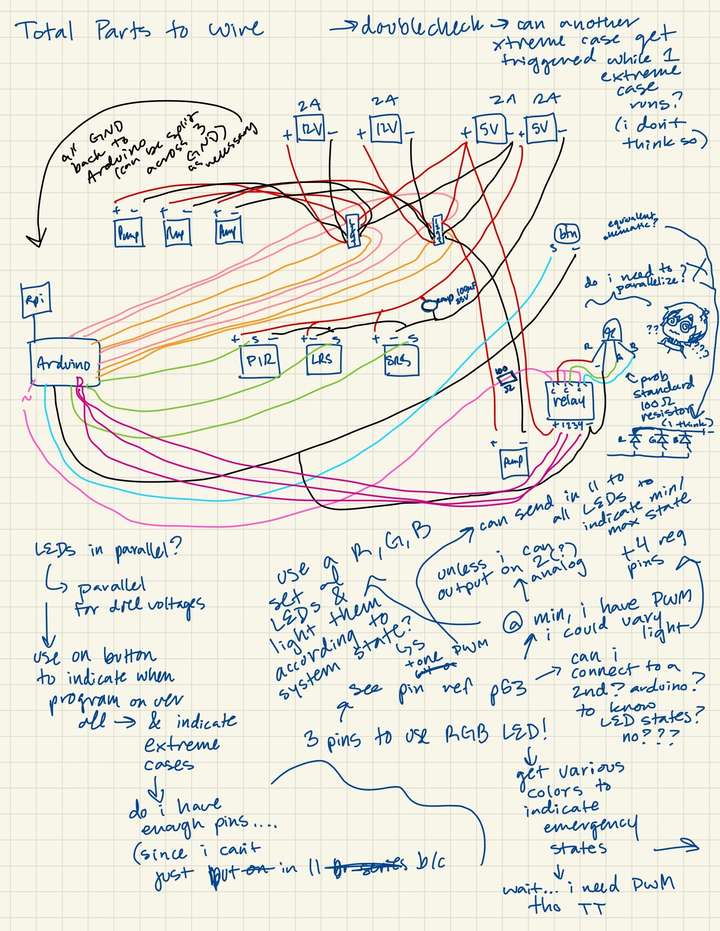 Total Parts to wire
→ doublecheck → can another
xtreme case get
triggered while 1
extreme
case
runs?
(i don't
think so)
GND
back to
Arduino
(can be split
across 3
GND)
as necessary
2A
2A
2A
2A
+ 12V -
+ 12V -
+ 5V -
+ 5V -
+ -
+ -
+ -
Pump
Pump
Pump
s btn -
equivalent
schematic?
do i need to
parallelize?
??
?
cap 100uF
35V
Rpi
Arduino
+ s -
+ - s
+ - s
PIR
LRS
SRS
100
Ω
R
G
B
relay
+ 1 2 3 4 -
prob
standard
100 Ω
resistor
(i think)
R G B -
+ -
Pump
~
LEDs in parallel?
↳ parallel
for diff voltages
use on button
to indicate when
program on over
all → & indicate
extreme
cases
do i have
enough pins....
(since i can't
just put on in || or series b/c
use a R, G, B
set of
LEDs &
light them
according to
system state?
↳ +one PWM
can send in || to
all LEDs to
indicate min/
max state
unless i can
output on 2(?)
analog
+4 reg
pins
@ min, i have PWM
i could vary
light
see pin ref p63 →
can i
connect to a
2nd? arduino?
to know
LED states?
no???
3 pins to use RGB LED!
get various
colors to
indicate
emergency
states
wait... i need PWM
tho TT